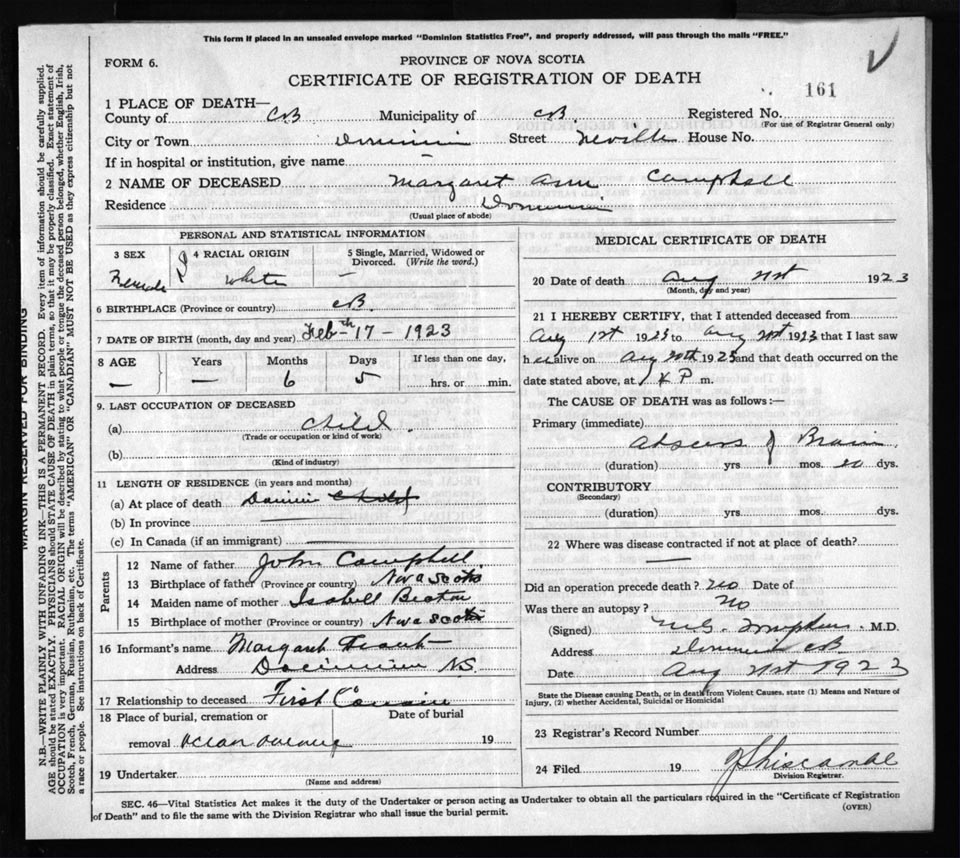 This form if placed in an unsealed envelope marked "Dominion Statistics Free", and properly addressed, will pass through the mails "FREE."
FORM 6.
PROVINCE OF NOVA SCOTIA
CERTIFICATE OF REGISTRATION OF DEATH
161
1 PLACE OF DEATH—
County of CB Municipality of CB Registered No.
(For use of Registrar General only)
City or Town Dominion Street Neville House No.
If in hospital or institution, give name —
2 NAME OF DECEASED Margaret Ann Campbell
Residence Dominion
(Usual place of abode)
PERSONAL AND STATISTICAL INFORMATION
3 SEX 4 RACIAL ORIGIN 5 Single, Married, Widowed or Divorced. (Write the word.)
Female White —
6 BIRTHPLACE (Province or country) CB
7 DATE OF BIRTH (month, day and year) Feb-th-17-1923
8 AGE Years Months Days If less than one day,
— — 6 5 hrs. or min.
9. LAST OCCUPATION OF DECEASED
(a) Child.
(Trade or occupation or kind of work)
(b)
(Kind of industry)
11 LENGTH OF RESIDENCE (in years and months)
(a) At place of death
(b) In province —
(c) In Canada (if an immigrant) —
Parents
12 Name of father John Campbell.
13 Birthplace of father (Province or country) Nova Scotia
14 Maiden name of mother Isabell Beaton
15 Birthplace of mother (Province or country) Nova Scotia
16 Informant's name Margaret
Address N.S.
17 Relationship to deceased First
18 Place of burial, cremation or Date of burial
removal Ocean 19
19 Undertaker
(Name and address)
MEDICAL CERTIFICATE OF DEATH
20 Date of death Aug 21st 1923
(Month, day and year)
21 I HEREBY CERTIFY, that I attended deceased from
Aug 1st 1923 to Aug 21st 1923 that I last saw
h er alive on Aug 20th 1923 and that death occurred on the
date stated above, at P m.
The CAUSE OF DEATH was as follows:—
Primary (immediate)
Abscess of Brain
(duration) yrs mos. 20 dys.
CONTRIBUTORY
(Secondary)
(duration) yrs mos. dys.
22 Where was disease contracted if not at place of death?
—
Did an operation precede death? No Date of
Was there an autopsy? No
(Signed) M.D.
Address Dominion CB
Date Aug 21st 1923
State the Disease causing Death, or in death from Violent Causes, state (1) Means and Nature of Injury, (2) whether Accidental, Suicidal or Homicidal
23 Registrar's Record Number
24 Filed 19
Division Registrar.
SEC. 46—Vital Statistics Act makes it the duty of the Undertaker or person acting as Undertaker to obtain all the particulars required in the "Certificate of Registration
of Death" and to file the same with the Division Registrar who shall issue the burial permit.
(OVER)
MARGIN RESERVED FOR BINDING
N.B.—WRITE PLAINLY WITH UNFADING INK—THIS IS A PERMANENT RECORD. Every item of information should be carefully supplied.
AGE should be stated EXACTLY. PHYSICIANS should STATE CAUSE OF DEATH in plain terms, so that it may be properly classified. Exact statement of
OCCUPATION is very important. RACIAL ORIGIN will be described by stating to what people or tongue the deceased person belonged, whether English, Irish,
Scotch, French, German, Russian, Ruthenian, etc. The terms "AMERICAN" OR "CANADIAN" MUST NOT BE USED as they express citizenship but not
a race or people. See instructions on back of Certificate.